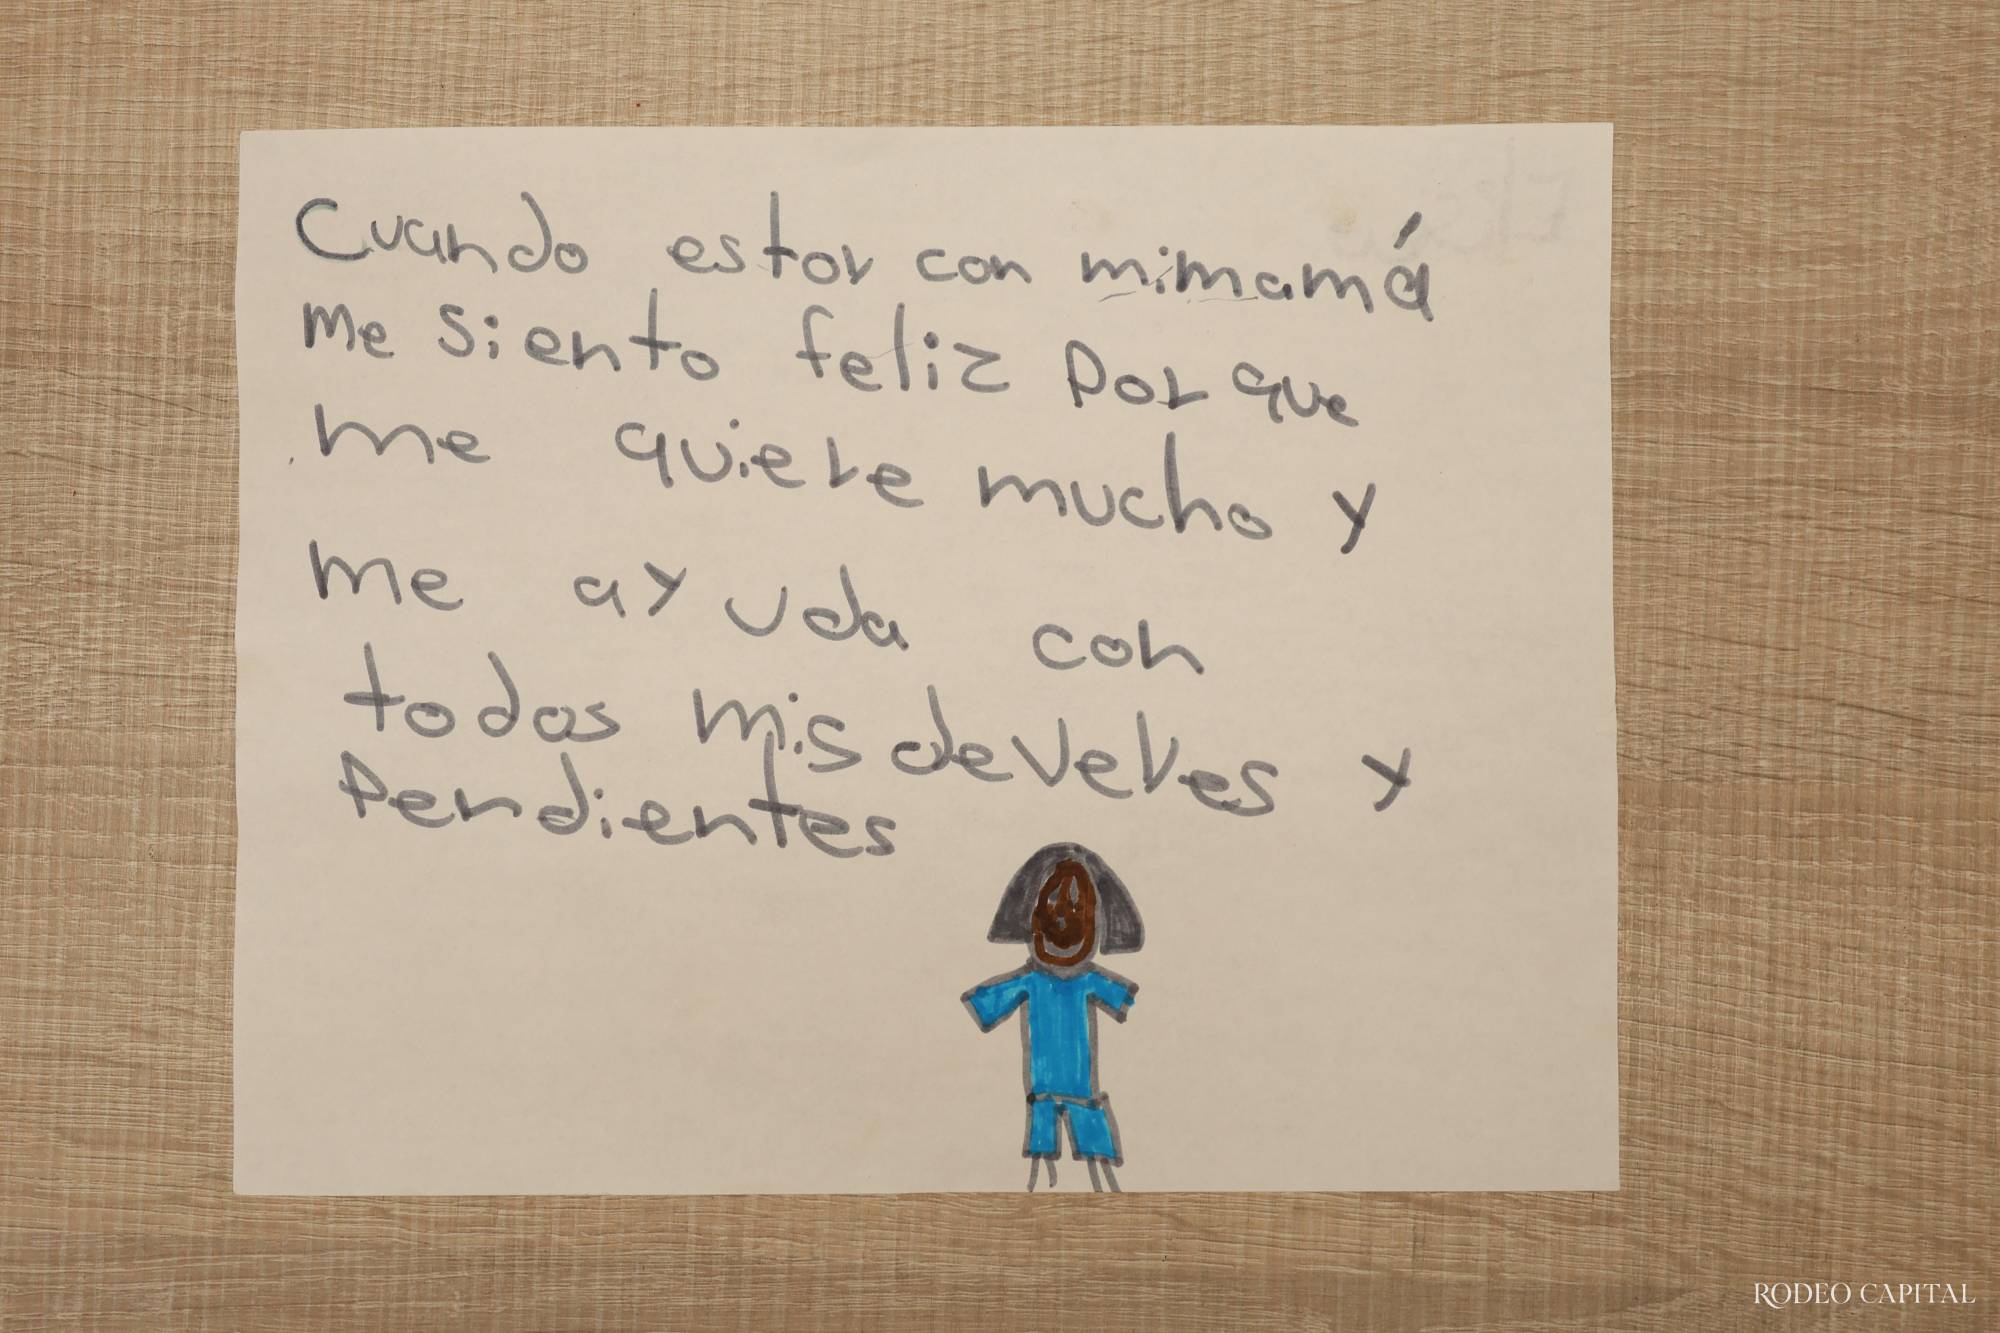 Cuando estoy con mi mamá
me siento feliz porque
me quiere mucho y
me ayuda con
todos mis deveres y
Pendientes
RODEO CAPITAL